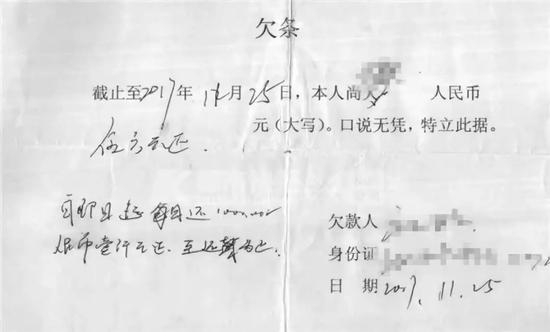 欠条
截止至2017年11月25日，本人尚欠 人民币
伍万元正 元（大写）。口说无凭，特立此据。
自即日起每月还1000.00
人民币壹仟元正，至还清为止.
欠款人
身份证
日 期 2017.11.25